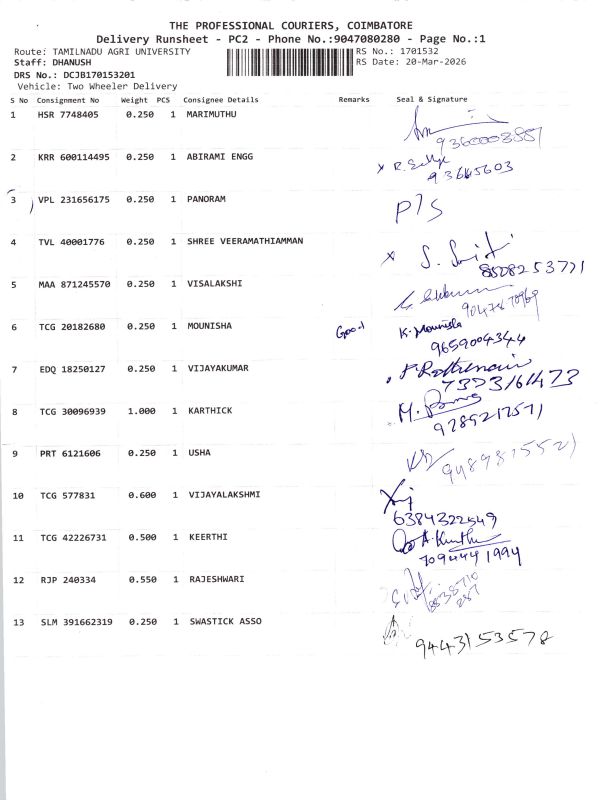 THE PROFESSIONAL COURIERS, COIMBATORE
Delivery Runsheet - PC2 - Phone No.:9047080280 - Page No.:1
Route: TAMILNADU AGRI UNIVERSITY RS No.: 1701532
Staff: DHANUSH RS Date: 20-Mar-2026
DRS No.: DCJB170153201
Vehicle: Two Wheeler Delivery
S No Consignment No Weight PCS Consignee Details Remarks Seal & Signature
1 HSR 7748405 0.250 1 MARIMUTHU
2 KRR 600114495 0.250 1 ABIRAMI ENGG
93645603
3 VPL 231656175 0.250 1 PANORAM P/S
4 TVL 40001776 0.250 1 SHREE VEERAMATHIAMMAN
5 MAA 871245570 0.250 1 VISALAKSHI
6 TCG 20182680 0.250 1 MOUNISHA Good K. Mounisha
9659004344
7 EDQ 18250127 0.250 1 VIJAYAKUMAR
8 TCG 30096939 1.000 1 KARTHICK
9 PRT 6121606 0.250 1 USHA
10 TCG 577831 0.600 1 VIJAYALAKSHMI
6384322549
11 TCG 42226731 0.500 1 KEERTHI
7094441994
12 RJP 240334 0.550 1 RAJESHWARI
13 SLM 391662319 0.250 1 SWASTICK ASSO
9443153578